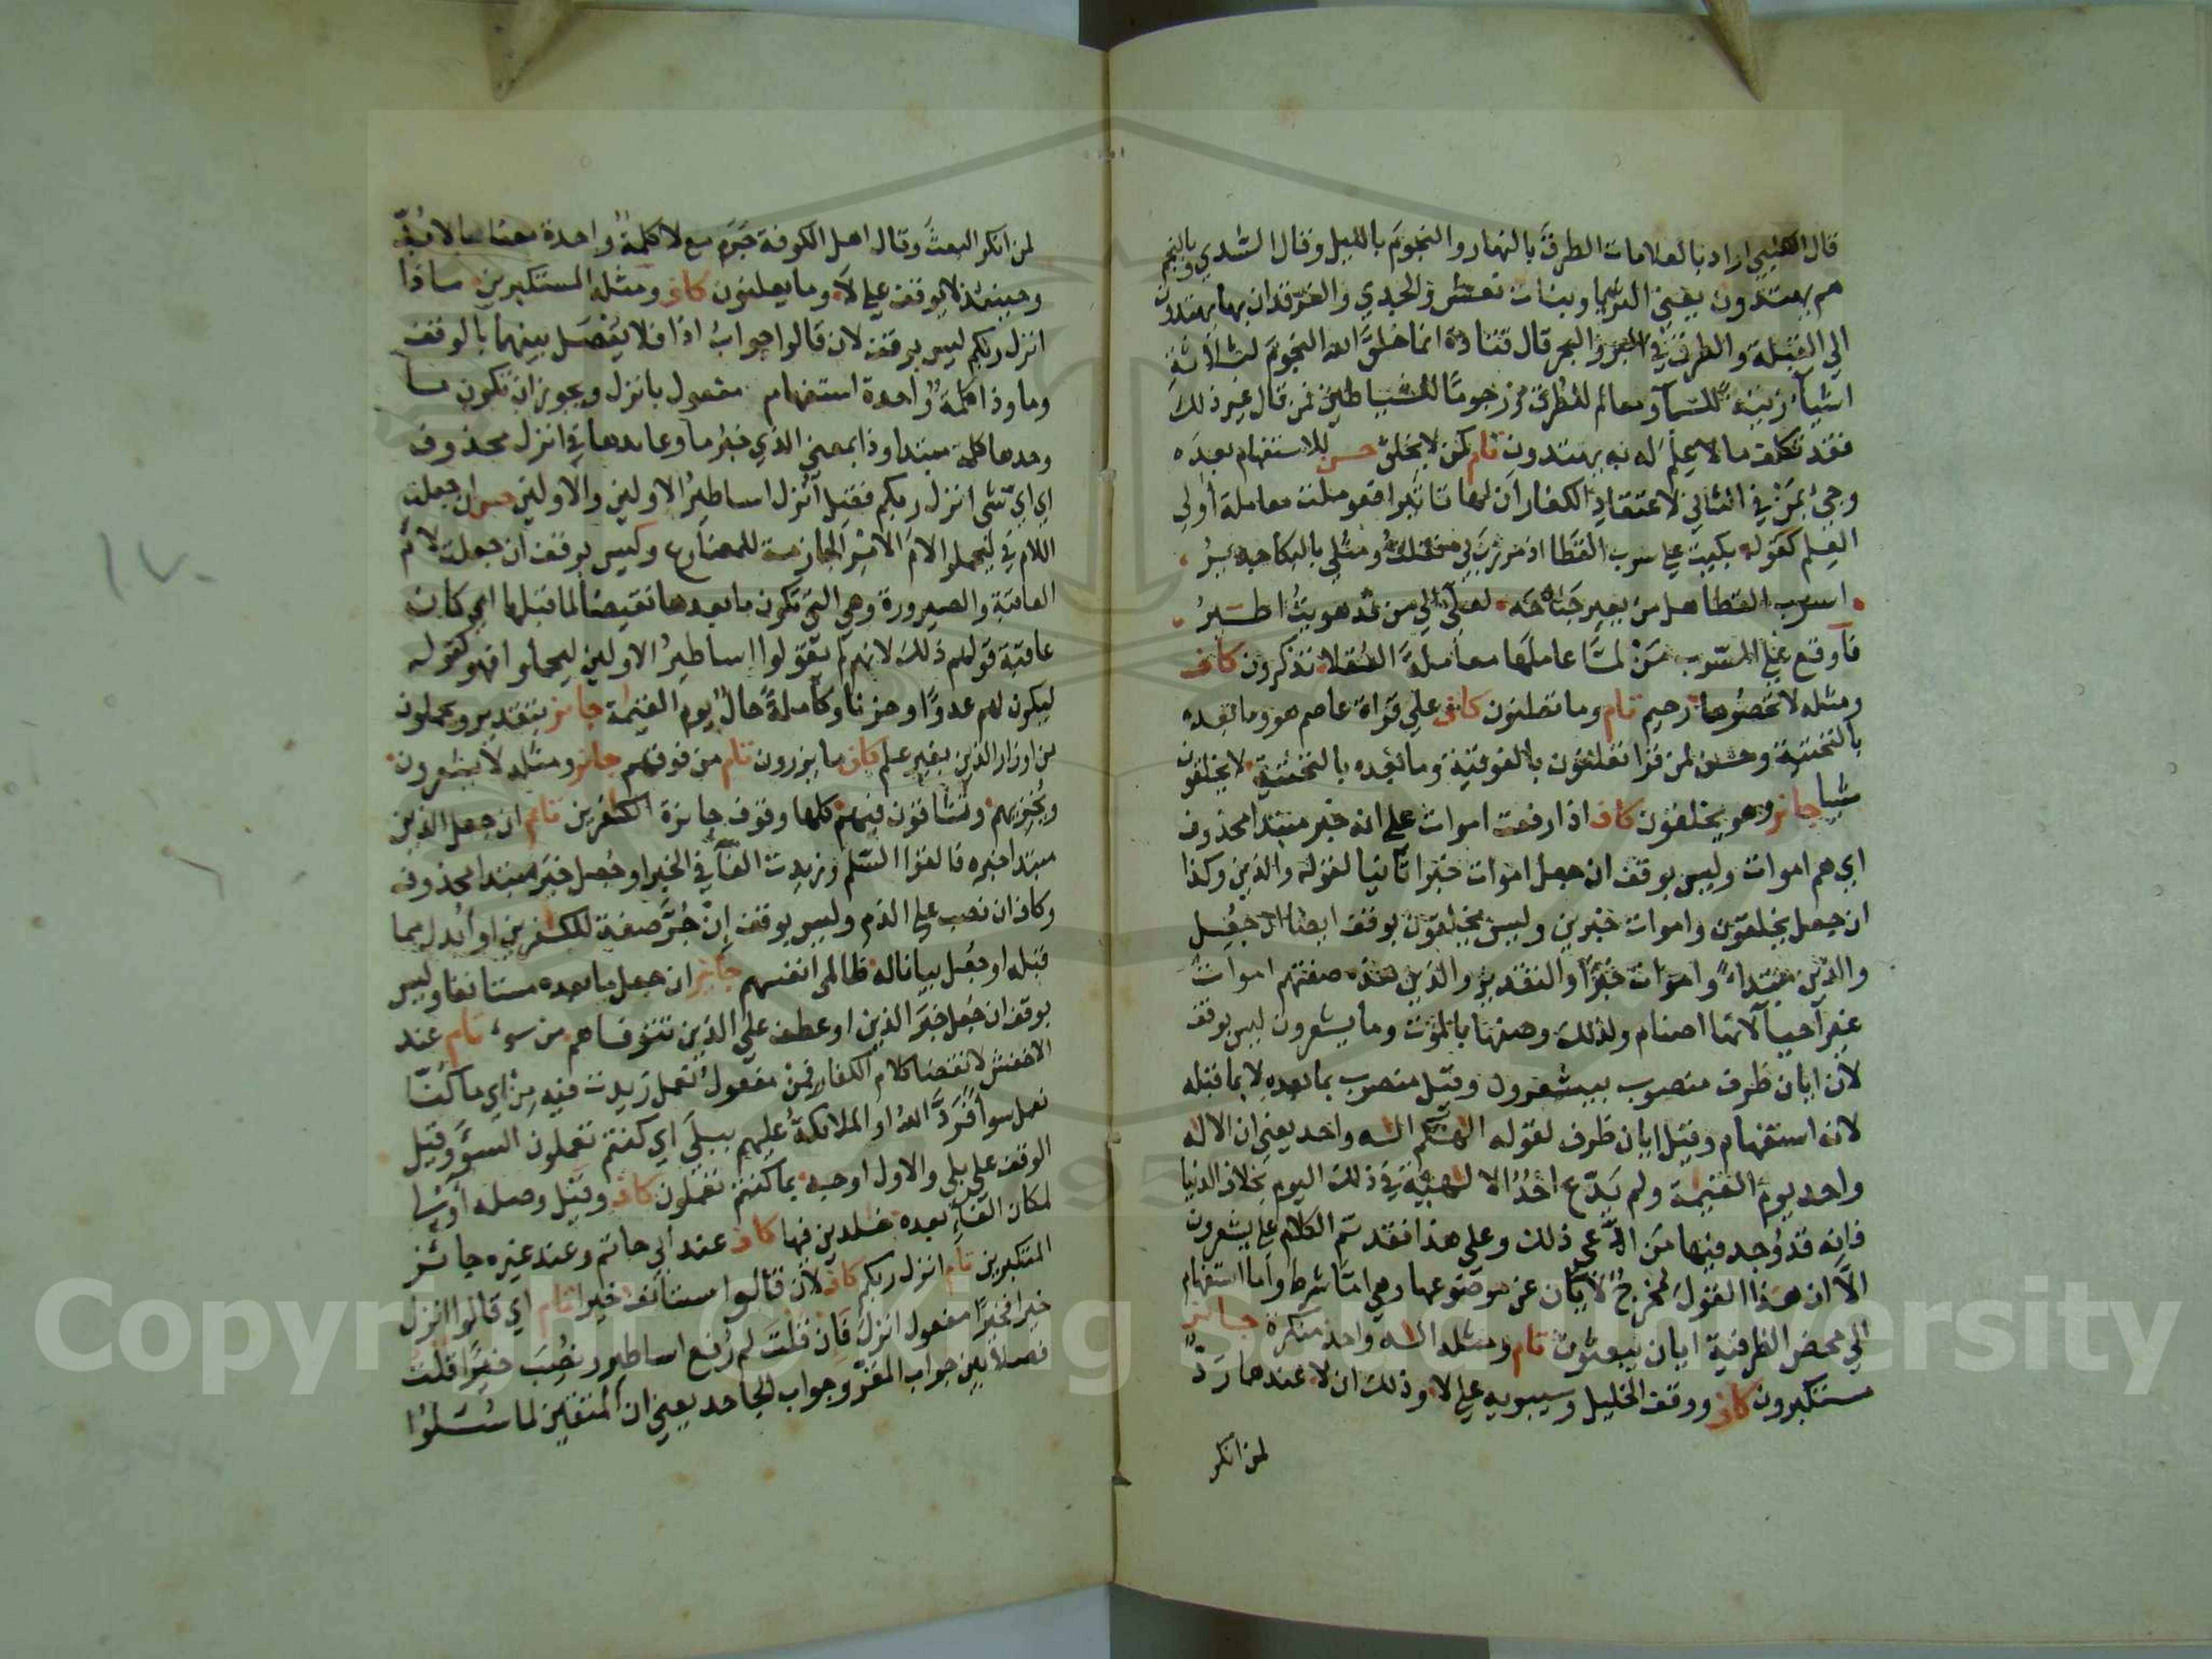 قال الكلبي اراد بالعلامات الطرق بالنهار والنجوم بالليل وقال السدي وبالنجم
هم يهتدون يعني الثريا وبنات نعش والجدي والفرقدان بها يهتدون
الي القبلة والطرق في البر والبحر قال قتادة انما خلق الله النجوم لثلاثة
اشيآء زينة للسمآء ومعالم للطرق ورجوما للشياطين فمن قال غير ذلك
فقد تكلف ما لا علم له به يهتدون تام كمن لا يخلق حسن للاستفهام بعده
وجئ بمن في الثاني لاعتقاد الكفار ان لها تاثيرا فعوملت معاملة اولي
العلم كقوله بكيت علي سرب القطا اذ مررن بي فقلت ومثلي بالبكا جدير
اسرب القطا هل من يعير جناحه لعلي الي من قد هويت اطير
فأوقع علي السرب من لما عاملها معاملة العقلا تذكرون كاف
ومثله لا تحصوها رحيم تام وما تعلنون كاف علي قراة عاصم هو وما بعده
بالتحتية وحسن لمن قرا تعلنون بالفوقية وما بعده بالتحتية لا يخلقون
شيا جائز وهم يخلقون كاف اذا رفعت اموات علي انه خبر مبتدا محذوف
اي هم اموات وليس بوقف ان جعل اموات خبرا ثانيا لقوله والذين وكذا
ان جعل يخلقون واموات خبرين وليس يخلقون بوقف ايضا ان جعل
والذين مبتداء واموات خبرا والتقدير والذين هذه صفتهم اموات
غير احيآ لانها اصنام ولذلك وصفها بالموت وما يشعرون ليس بوقف
لان ايان ظرف منصوب بيشعرون وقيل منصوب بما بعده لا بما قبله
لانه استفهام وقيل ايان ظرف لقوله الهكم اله واحد يعني ان الاله
واحد يوم القيمة ولم يدع احد الالهية في ذلك اليوم بخلاف الدنيا
فانه قد وجد فيها من ادعي ذلك وعلي هذا فقد تم الكلام علي يشعرون
الا ان هذا القول مخرج لايان عن موضوعها وهي اما شرط واما استفهام
الي محض الظرفية ايان يبعثون تام ومثله اله واحد منكرة جائز
مستكبرون كاف ووقف الخليل وسيبويه علي لا وذلك ان لا عندهما رد
لمن انكر
لمن انكر البعث وقال اهل الكوفة جرم مع لا كلمة واحدة معناها لا بد
وحينئذ لا يوقف علي لا وما يعلنون كاف ومثله المستكبرين ماذا
انزل ربكم ليس بوقف لان قالوا جواب اذا فلا يفصل بينهما بالوقف
وما وذا كلمة واحدة استفهام مفعول بانزل ويجوز ان تكون ما
وحدها كلمة مبتدا وذا بمعني الذي خبر ما وعايدها في انزل محذوف
اي اي شي انزل ربكم فقيل انزل اساطير الاولين والاولين حسن ان جعلت
اللام في ليحملوا لام الامر الجازمة للمضارع وليس بوقف ان جعلت لام
العاقبة والصيرورة وهي التي تكون ما بعدها نقيضا لما قبلها اي كان
عاقبة قولهم ذلك لانهم لم يقولوا اساطير الاولين ليحملوا فهو كقوله
ليكون لهم عدوا وحزنا وكاملة حال يوم القيمة جائز بتقدير ويحملون
من اوزار الذين بغير علم كاف ما يزرون تام من فوقهم جائز ومثله لا يشعرون
ويخزيهم وتشاقون فيهم كلها وقوف جائزة الكافرين تام ان جعل الذين
مبتدا خبره فالقوا السلم وزيدت الفآ في الخبر او جعل خبر مبتدا محذوف
وكاف ان نصب علي الذم وليس بوقف ان جر صفة للكافرين او ابدل مما
قبله او جعل بيانا له ظالمي انفسهم جائز ان جعل ما بعده مستانفا وليس
بوقف ان جعل خبر الذين او عطف علي الذين تتوفاهم من سوء تام عند
الاخفش لانقضا كلام الكفار فمن مفعول نعمل زيدت فيه من اي ما كنا
نعمل سوأ فرد الله او الملائكة عليهم ببلي اي كنتم تعملون السؤ وقيل
الوقف علي بلي والاول اوجه بما كنتم تعملون كاف وقيل وصله اولي
لمكان الفاء بعده خلدين فيها كاف عند ابي حاتم وعند غيره جائز
المتكبرين تام انزل ربكم كاف لان قالوا مستانف خيرا تام اي قالوا انزل
خيرا فخيرا مفعول انزل فان قلت لم رفع اساطير ونصب خيرا قلت
فصلا بين جواب المقر وجواب الجاحد يعني ان المتقين لما سئلوا
Copyright © King Saud University